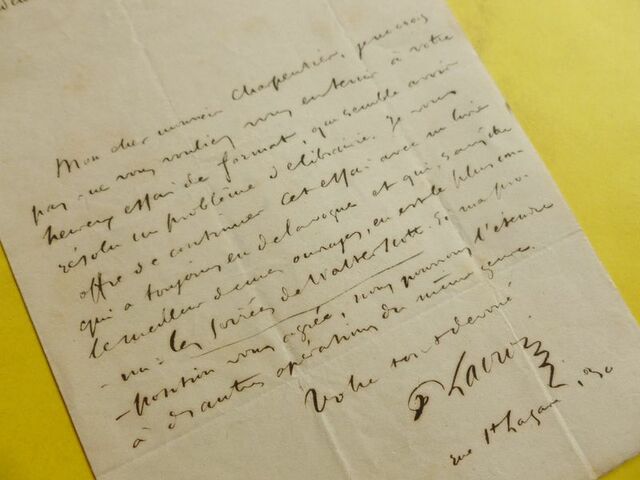 Mon cher monsieur Charpentier, je ne crois
pas que vous vouliez vous en tenir à votre
heureux essai de format, qui semble avoir
résolu un problème de librairie. Je vous
offre de continuer cet essai avec un livre
qui a toujours eu de la vogue et qui, sans être
le meilleur de mes ouvrages, en est le plus con
-nu: les Soirées de Walter Scott. Si ma pro
-position vous agrée, nous pourrons l'étendre
à d'autres opérations du même genre.
Votre tout dévoué
P Lacroix
rue St Lazare, 30